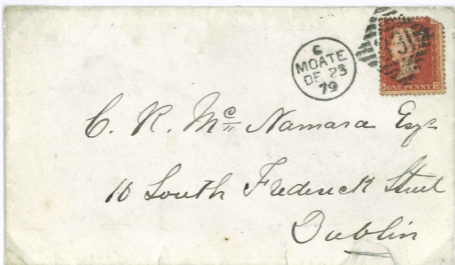 C
MOATE
DE 23
79
ONE PENNY
C. R. Mc Namara Esqr
16 South Frederick Street
Dublin